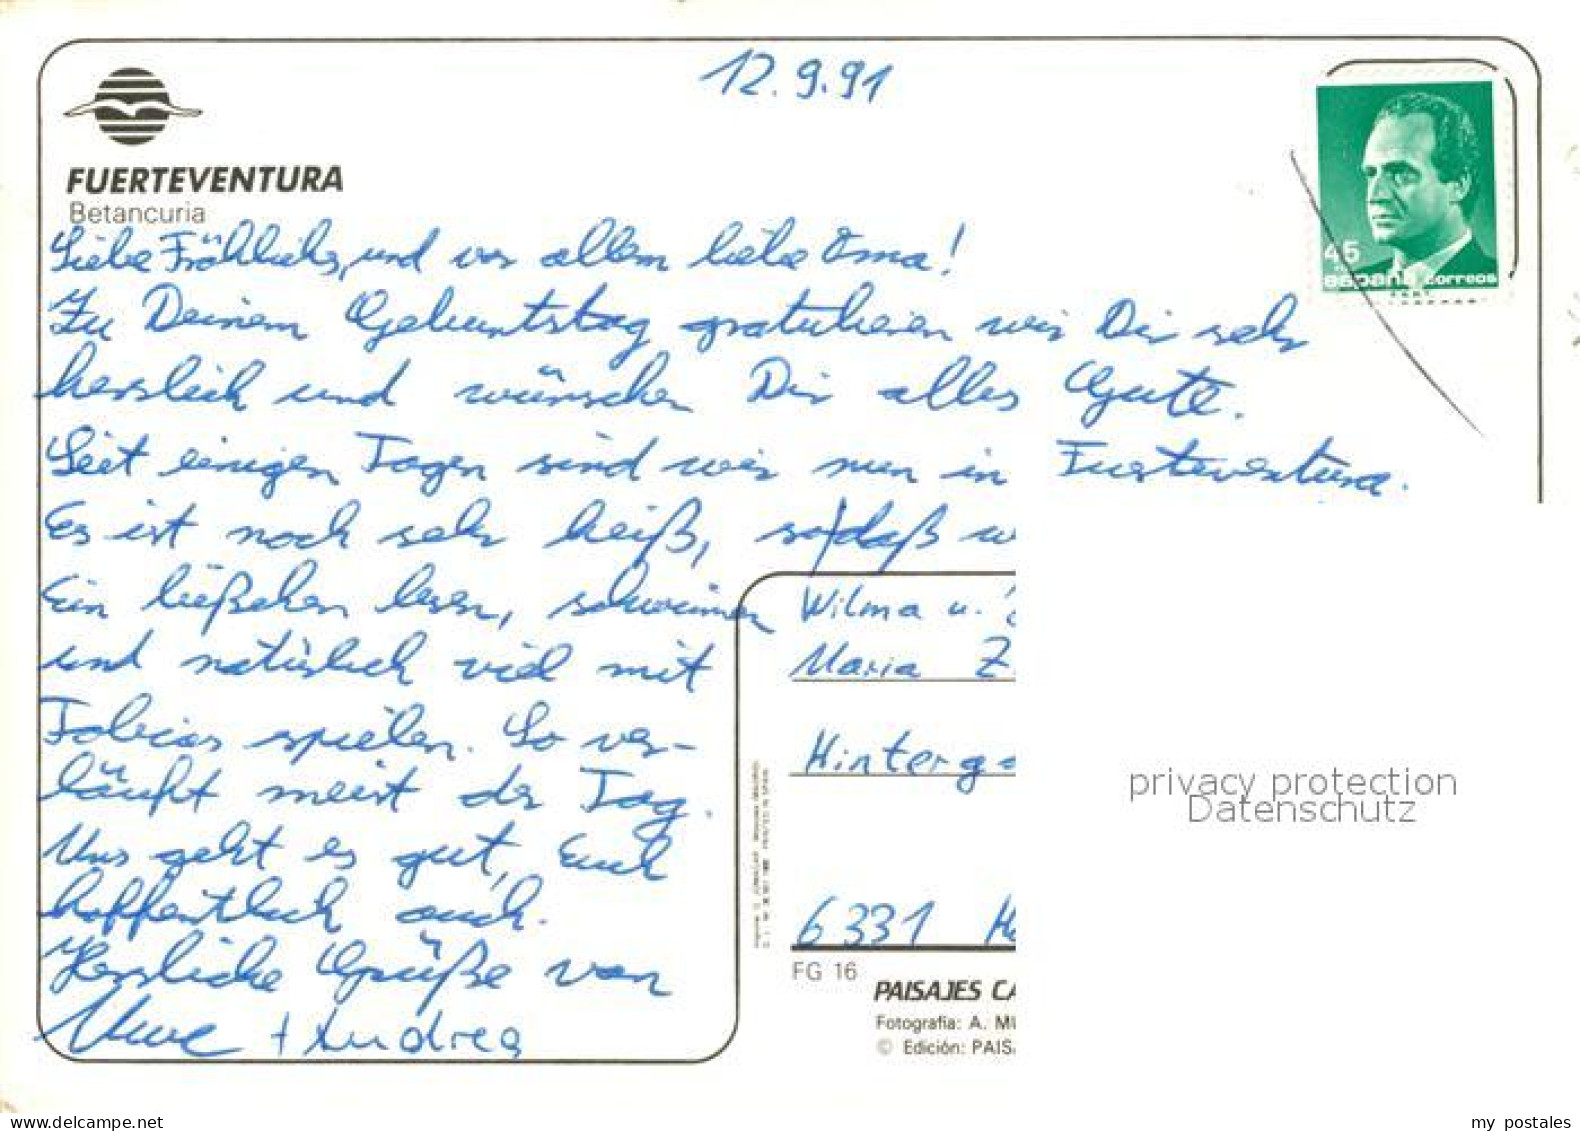 12.9.91
FUERTEVENTURA
Betancuria
Liebe Fröhlichs, und vor allem liebe Oma!
Zu Deinem Geburtstag gratulieren wir Dir sehr
herzlich und wünschen Dir alles Gute.
Seit einigen Tagen sind wir nun in Fuerteventura.
Es ist noch sehr heiß, so daß w
Ein bißchen lesen, schwimmen
und natürlich viel mit
Tobias spielen. So ver-
läuft meist der Tag.
Uns geht es gut, Euch
hoffentlich auch.
Herzliche Grüße von
Uwe + Andrea
45
españa correos
Wilma u.
Maria Z.
Hinterga
6331 H
FG 16
PAISAJES CA
Fotografía: A. MU
© Edición: PAIS
privacy protection
Datenschutz
my postales